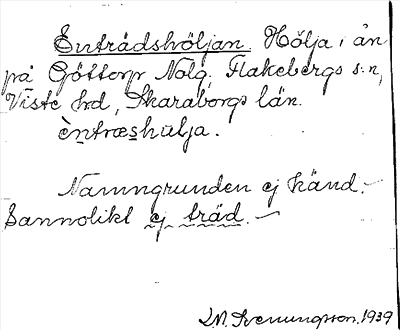 Enträdshöljan. Hölja i ån
på Göttorp Nolg, Flakebergs s:n,
Viste hrd, Skaraborgs län.
èntræshulja.
Namngrunden ej känd.—
Sannolikt ej träd.—
Sveningsson. 1939